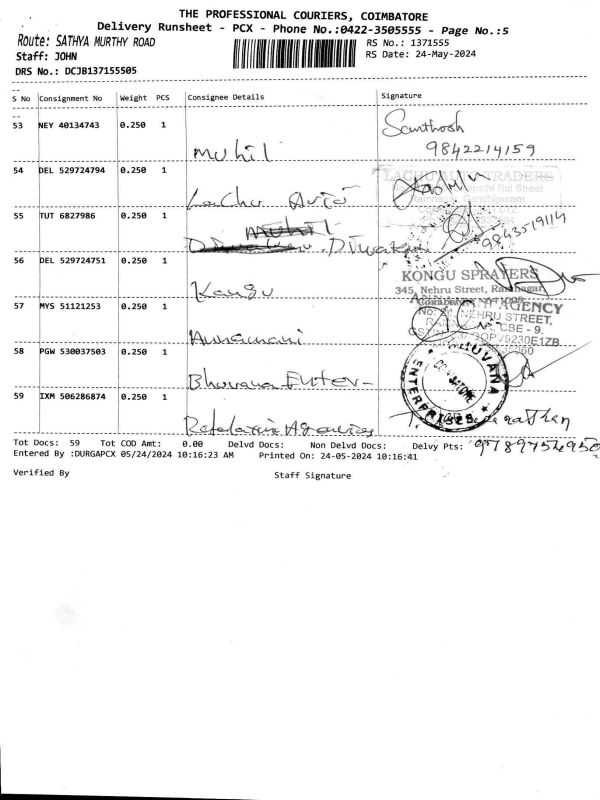 THE PROFESSIONAL COURIERS, COIMBATORE
Delivery Runsheet - PCX - Phone No.:0422-3505555 - Page No.:5
Route: SATHYA MURTHY ROAD
RS No.: 1371555
Staff: JOHN
RS Date: 24-May-2024
DRS No.: DCJB137155505
S No Consignment No Weight PCS Consignee Details Signature
53 NEY 40134743 0.250 1 Muhil Santhosh
9842214159
54 DEL 529724794 0.250 1 Lachu Auto
LACHU TRADERS
55 TUT 6827986 0.250 1 Diwakar
9843519114
56 DEL 529724751 0.250 1 Kongu
KONGU SPRAYERS
345, Nehru Street, Ramnagar,
57 MYS 51121253 0.250 1 Annamani
AGENCY
NEHRU STREET,
CBE - 9.
58 PGW 530037503 0.250 1 Bhuvana Enter-
BHUVANA ENTERPRISES
59 IXM 506286874 0.250 1 Agencies
Tot Docs: 59 Tot COD Amt: 0.00 Delvd Docs: Non Delvd Docs: Delvy Pts:
9789754950
Entered By :DURGAPCX 05/24/2024 10:16:23 AM Printed On: 24-05-2024 10:16:41
Verified By Staff Signature